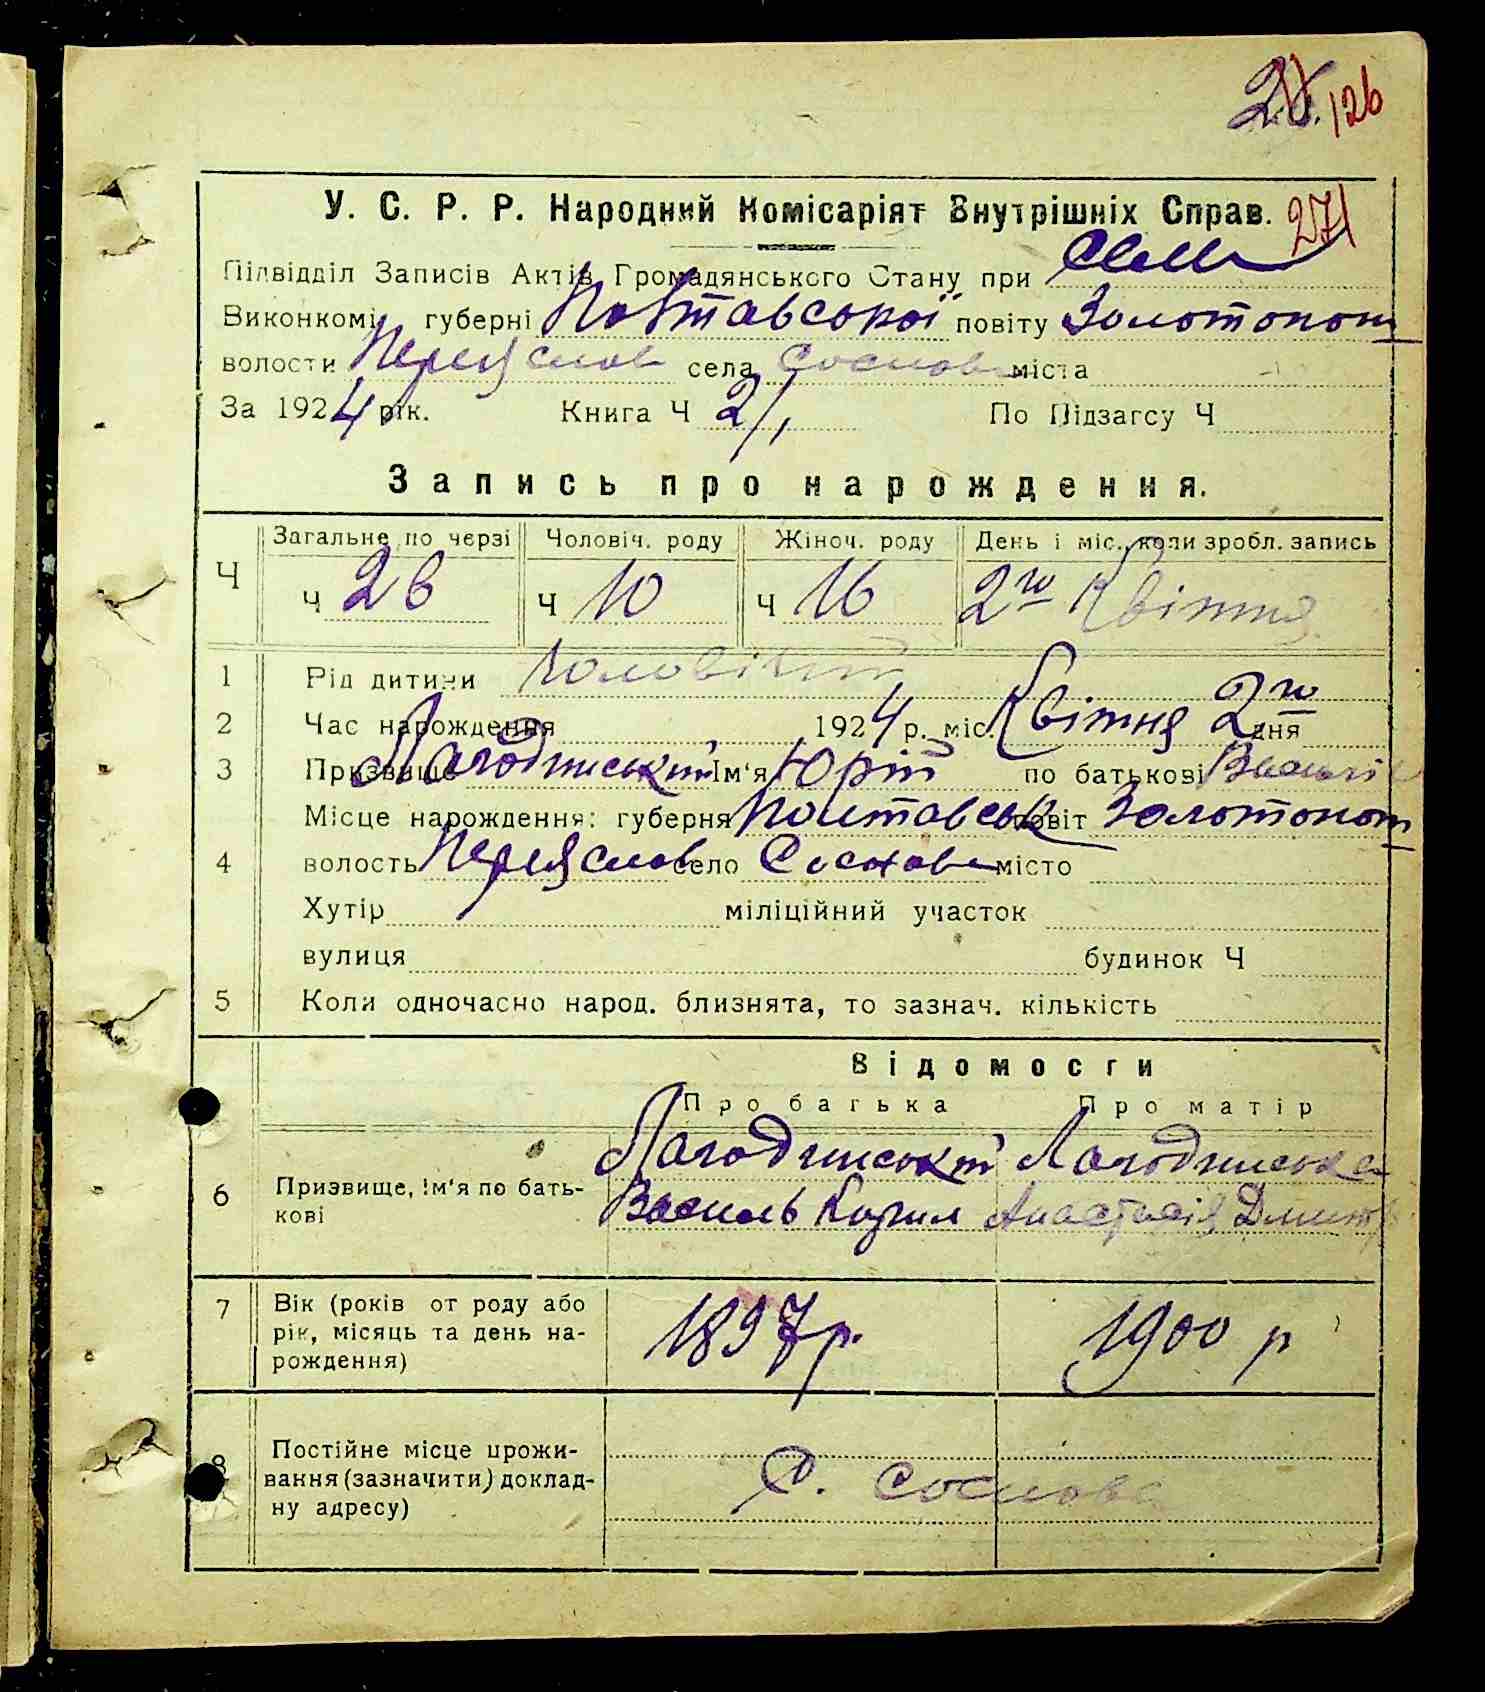 126
У. С. Р. Р. Народний Комісаріят Внутрішніх Справ. 271
Підвідділ Записів Актів Громадянського Стану при
Виконкомі губерні Полтавської повіту Золотонош
волости Переяслов села Соснов міста
За 1924 рік. Книга Ч 2/1 По Підзагсу Ч
Запись про нарождення.
Загальне по черзі Чоловіч. роду Жіноч. роду День і міс., коли зробл. запись
Ч Ч 26 Ч 10 Ч 16 2го Квітня
1 Рід дитини Чоловічий
2 Час нарождення 1924 р. міс. Квітня 2го дня
3 Призвище Лагодинський Ім'я Юрій по батькові Василів
Місце нарождення: губерня Полтавськ повіт Золотонош
4 волость Переяслов село Соснов місто
Хутір міліційний участок
вулиця будинок Ч
5 Коли одночасно народ. близнята, то зазнач. кількість
Відомости
Про батька Про матір
Лагодинський Лагодинська
6 Призвище, ім'я по бать-
кові Василь Кирил Анастасія Дмитр
7 Вік (років от роду або
рік, місяць та день на-
рождення) 1897 р. 1900 р
8 Постійне місце прожи-
вання (зазначити) доклад-
ну адресу) С. Соснова